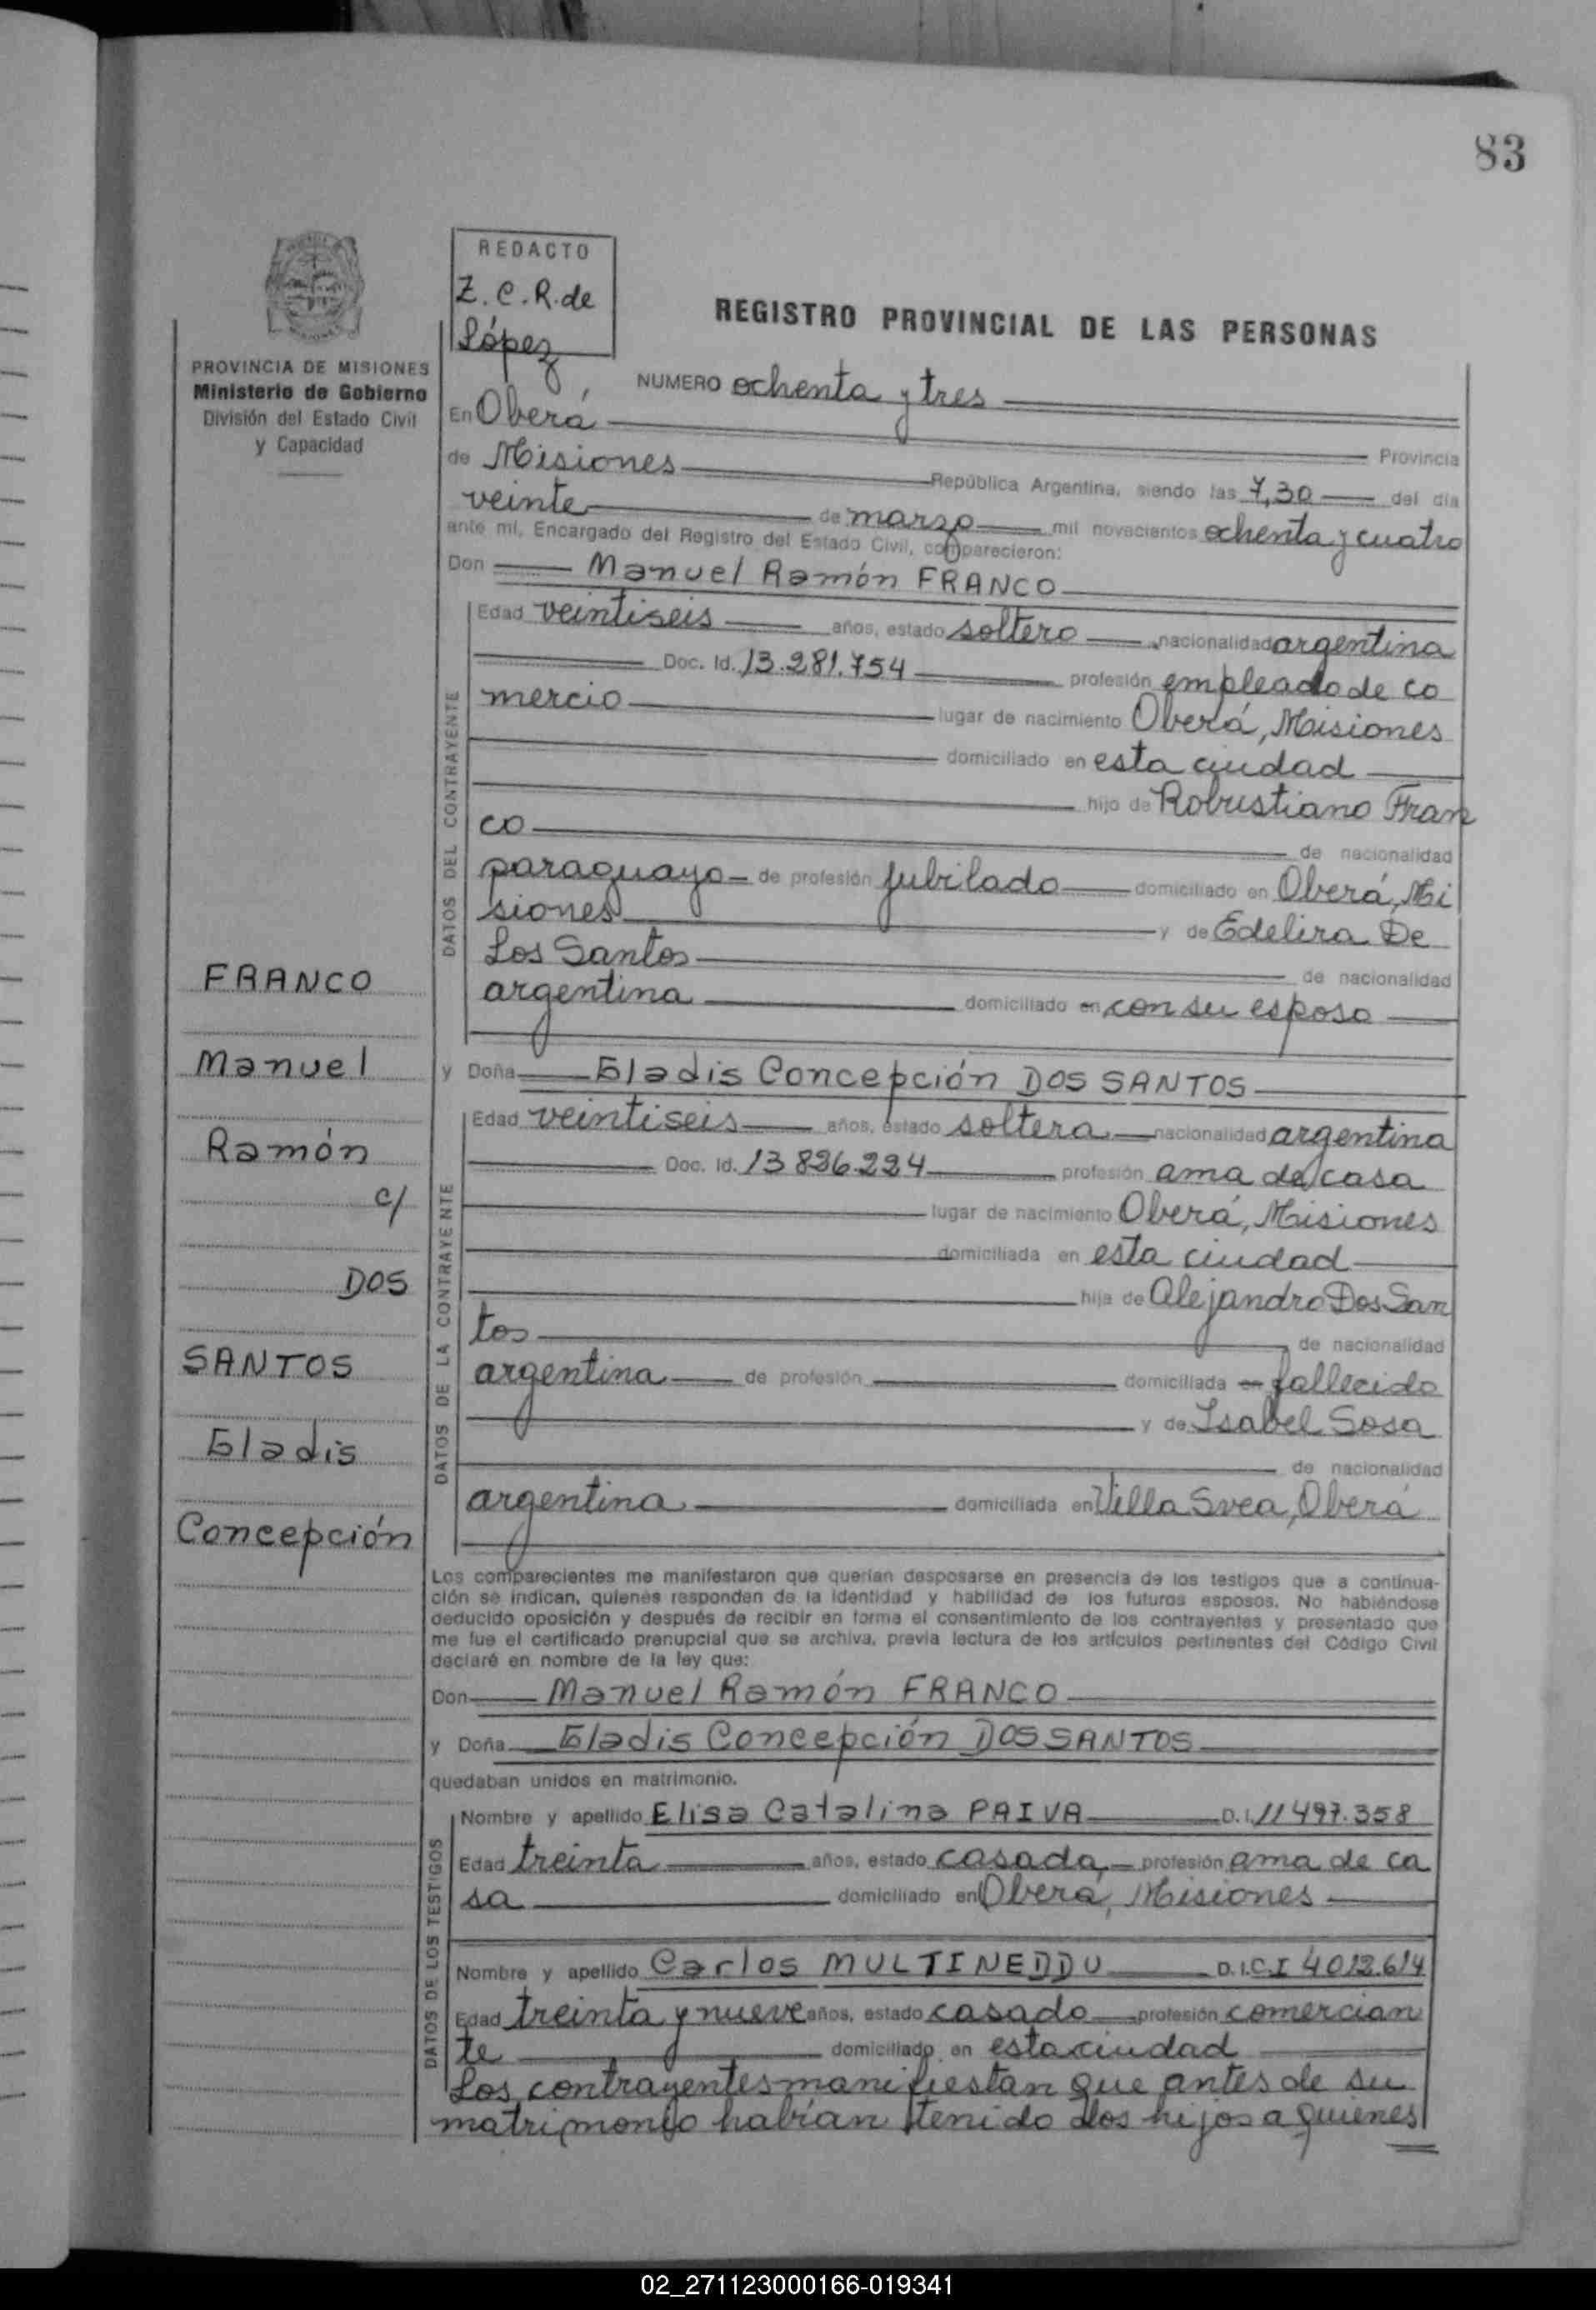 83
REDACTO
Z. C. R. de
López
REGISTRO PROVINCIAL DE LAS PERSONAS
PROVINCIA DE MISIONES
Ministerio de Gobierno
División del Estado Civil
y Capacidad
NUMERO ochenta y tres
En Oberá
Provincia
de Misiones República Argentina, siendo las 7,30 del día
veinte de marzo mil novecientos ochenta y cuatro
ante mí, Encargado del Registro del Estado Civil, comparecieron:
Don Manuel Ramón FRANCO
DATOS DEL CONTRAYENTE
Edad veintiseis años, estado soltero nacionalidad argentina
Doc. Id. 13.281.754 profesión empleado de co
mercio lugar de nacimiento Oberá, Misiones
domiciliado en esta ciudad
hijo de Robustiano Fran
co de nacionalidad
paraguayo de profesión jubilado domiciliado en Oberá, Mi
siones y de Edelira De
Los Santos de nacionalidad
argentina domiciliado en con su esposo
y Doña Gladis Concepción DOS SANTOS
DATOS DE LA CONTRAYENTE
Edad veintiseis años, estado soltera nacionalidad argentina
Doc. Id. 13 826.224 profesión ama de casa
lugar de nacimiento Oberá, Misiones
domiciliada en esta ciudad
hija de Alejandro Dos San
tos de nacionalidad
argentina de profesión domiciliada en fallecido
y de Isabel Sosa
de nacionalidad
argentina domiciliada en Villa Svea, Oberá
FRANCO
Manuel
Ramón
c/
DOS
SANTOS
Gladis
Concepción
Los comparecientes me manifestaron que querían desposarse en presencia de los testigos que a continua-
ción se indican, quienes responden de la identidad y habilidad de los futuros esposos. No habiéndose
deducido oposición y después de recibir en forma el consentimiento de los contrayentes y presentado que
me fue el certificado prenupcial que se archiva, previa lectura de los artículos pertinentes del Código Civil
declaré en nombre de la ley que:
Don Manuel Ramón FRANCO
y Doña Gladis Concepción DOS SANTOS
quedaban unidos en matrimonio.
DATOS DE LOS TESTIGOS
Nombre y apellido Elisa Catalina PAIVA D.I. 11 497.358
Edad treinta años, estado casada profesión ama de ca
sa domiciliado en Oberá, Misiones
Nombre y apellido Carlos MULTINEDDU D.I. C.I 4012.614
Edad treinta y nueve años, estado casado profesión comercian
te domiciliado en esta ciudad
Los contrayentes manifiestan que antes de su
matrimonio habían tenido dos hijos a quienes
02_271123000166-019341